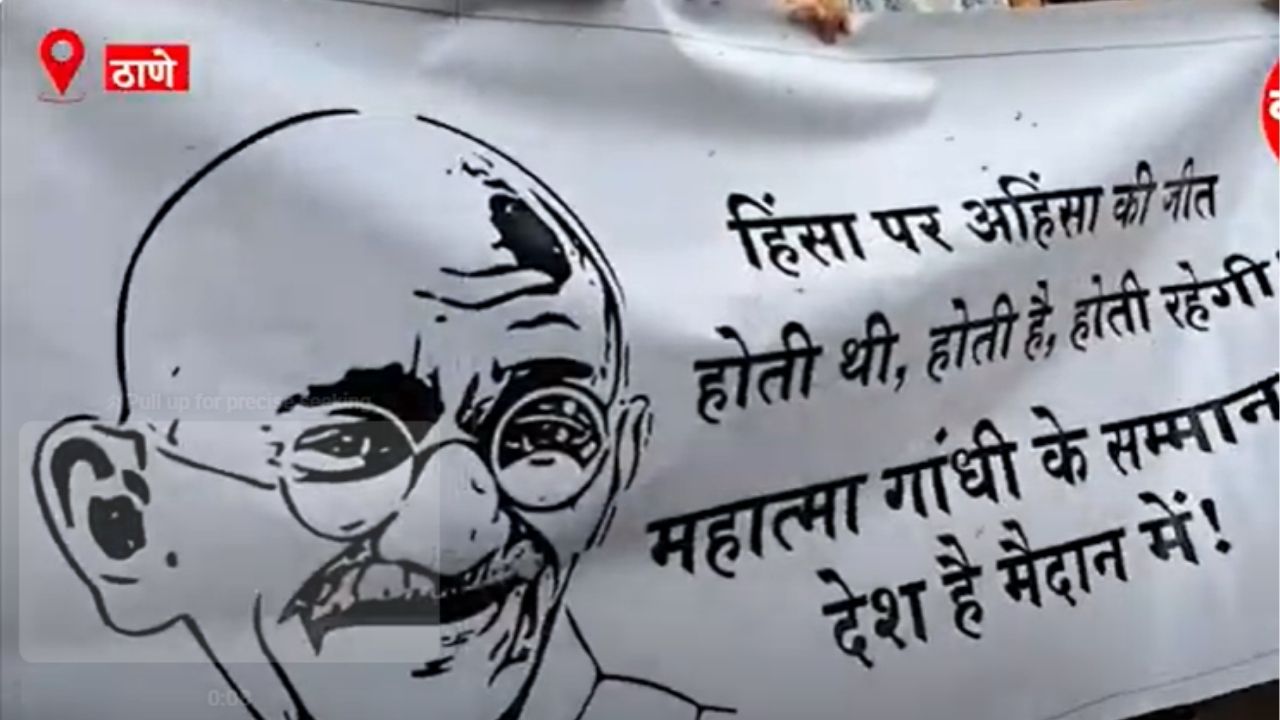 ठाणे
हिंसा पर अहिंसा की जीत
होती थी, होती है, होती रहेगी
महात्मा गांधी के सम्मान
देश है मैदान में!
Pull up for precise seeking